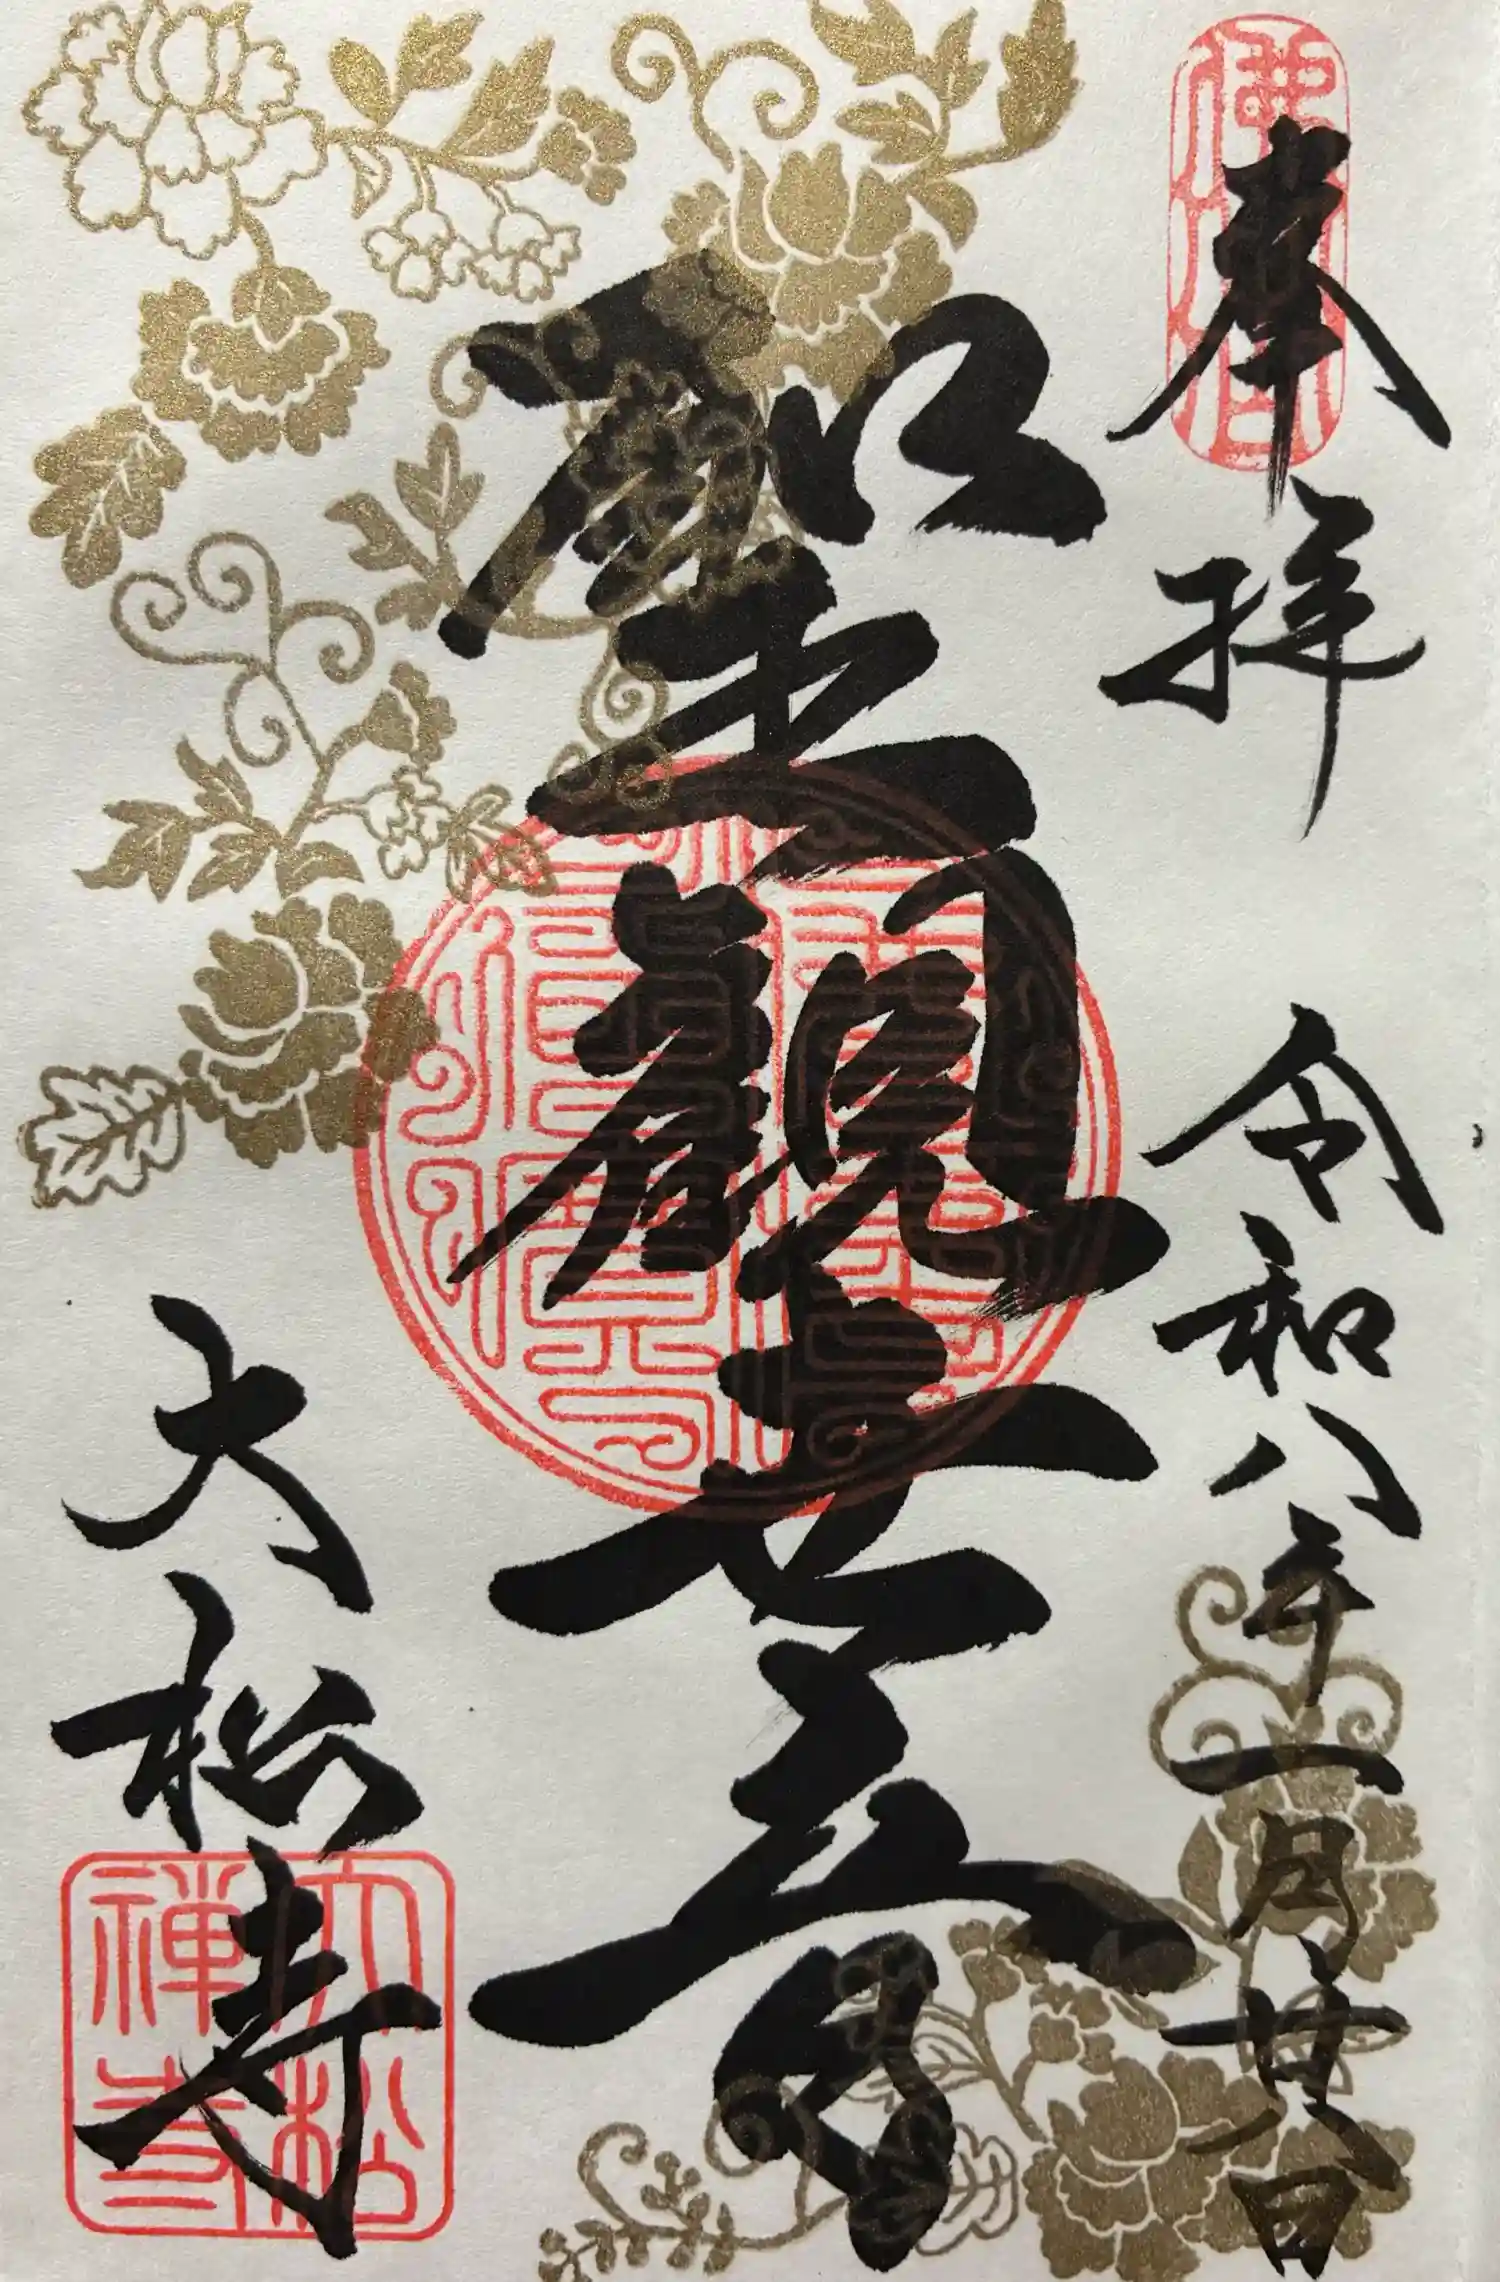 奉拝
令和八年一月廿日
聖観世音
大松寺
大松
禅寺